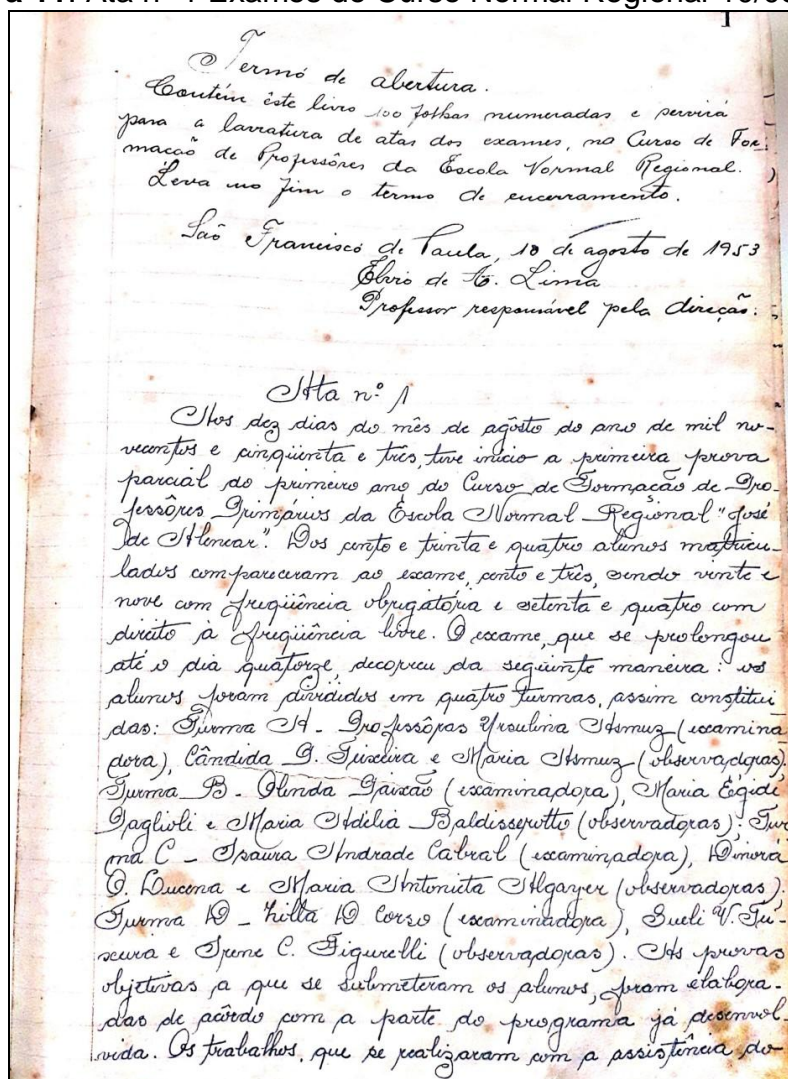 Ata nº 1 Exames do Curso Normal Regional
1
Termo de abertura.
Contém êste livro 100 folhas numeradas e servirá
para a lavratura de atas dos exames, no Curso de For-
mação de Professôres da Escola Normal Regional.
Leva no fim o termo de encerramento.
São Francisco de Paula, 10 de agosto de 1953
Elvio de A. Lima
Professor responsável pela direção.
Ata nº 1
Aos dez dias do mês de agôsto do ano de mil no-
vecentos e cinqüenta e três, teve início a primeira prova
parcial do primeiro ano do Curso de Formação de Pro-
fessôres Primários da Escola Normal Regional "José
de Alencar". Dos cento e trinta e quatro alunos matricu-
lados compareceram ao exame, cento e três, sendo vinte e
nove com freqüência obrigatória e setenta e quatro com
direito à freqüência livre. O exame, que se prolongou
até o dia quatorze, decorreu da seguinte maneira: os
alunos foram divididos em quatro turmas, assim constitui
das: Turma A - Professôras Ursulina Asmuz (examina
dora), Cândida P. Teixeira e Maria Asmuz (observadoras).
Turma B - Olinda Paixão (examinadora), Maria Egidi
Paglioli e Maria Adélia Baldisserotto (observadoras). Tur
ma C - Isaura Andrade Cabral (examinadora), Dinorá
O. Lucena e Maria Antonieta Algayer (observadoras).
Turma D - Zilla D Corso (examinadora), Sueli V. Tei-
xeira e Irene C. Figurelli (observadoras). As provas
objetivas a que se submeteram os alunos, foram elabora-
das de acôrdo com a parte do programa já desenvol-
vida. Os trabalhos, que se realizaram com a assistência do